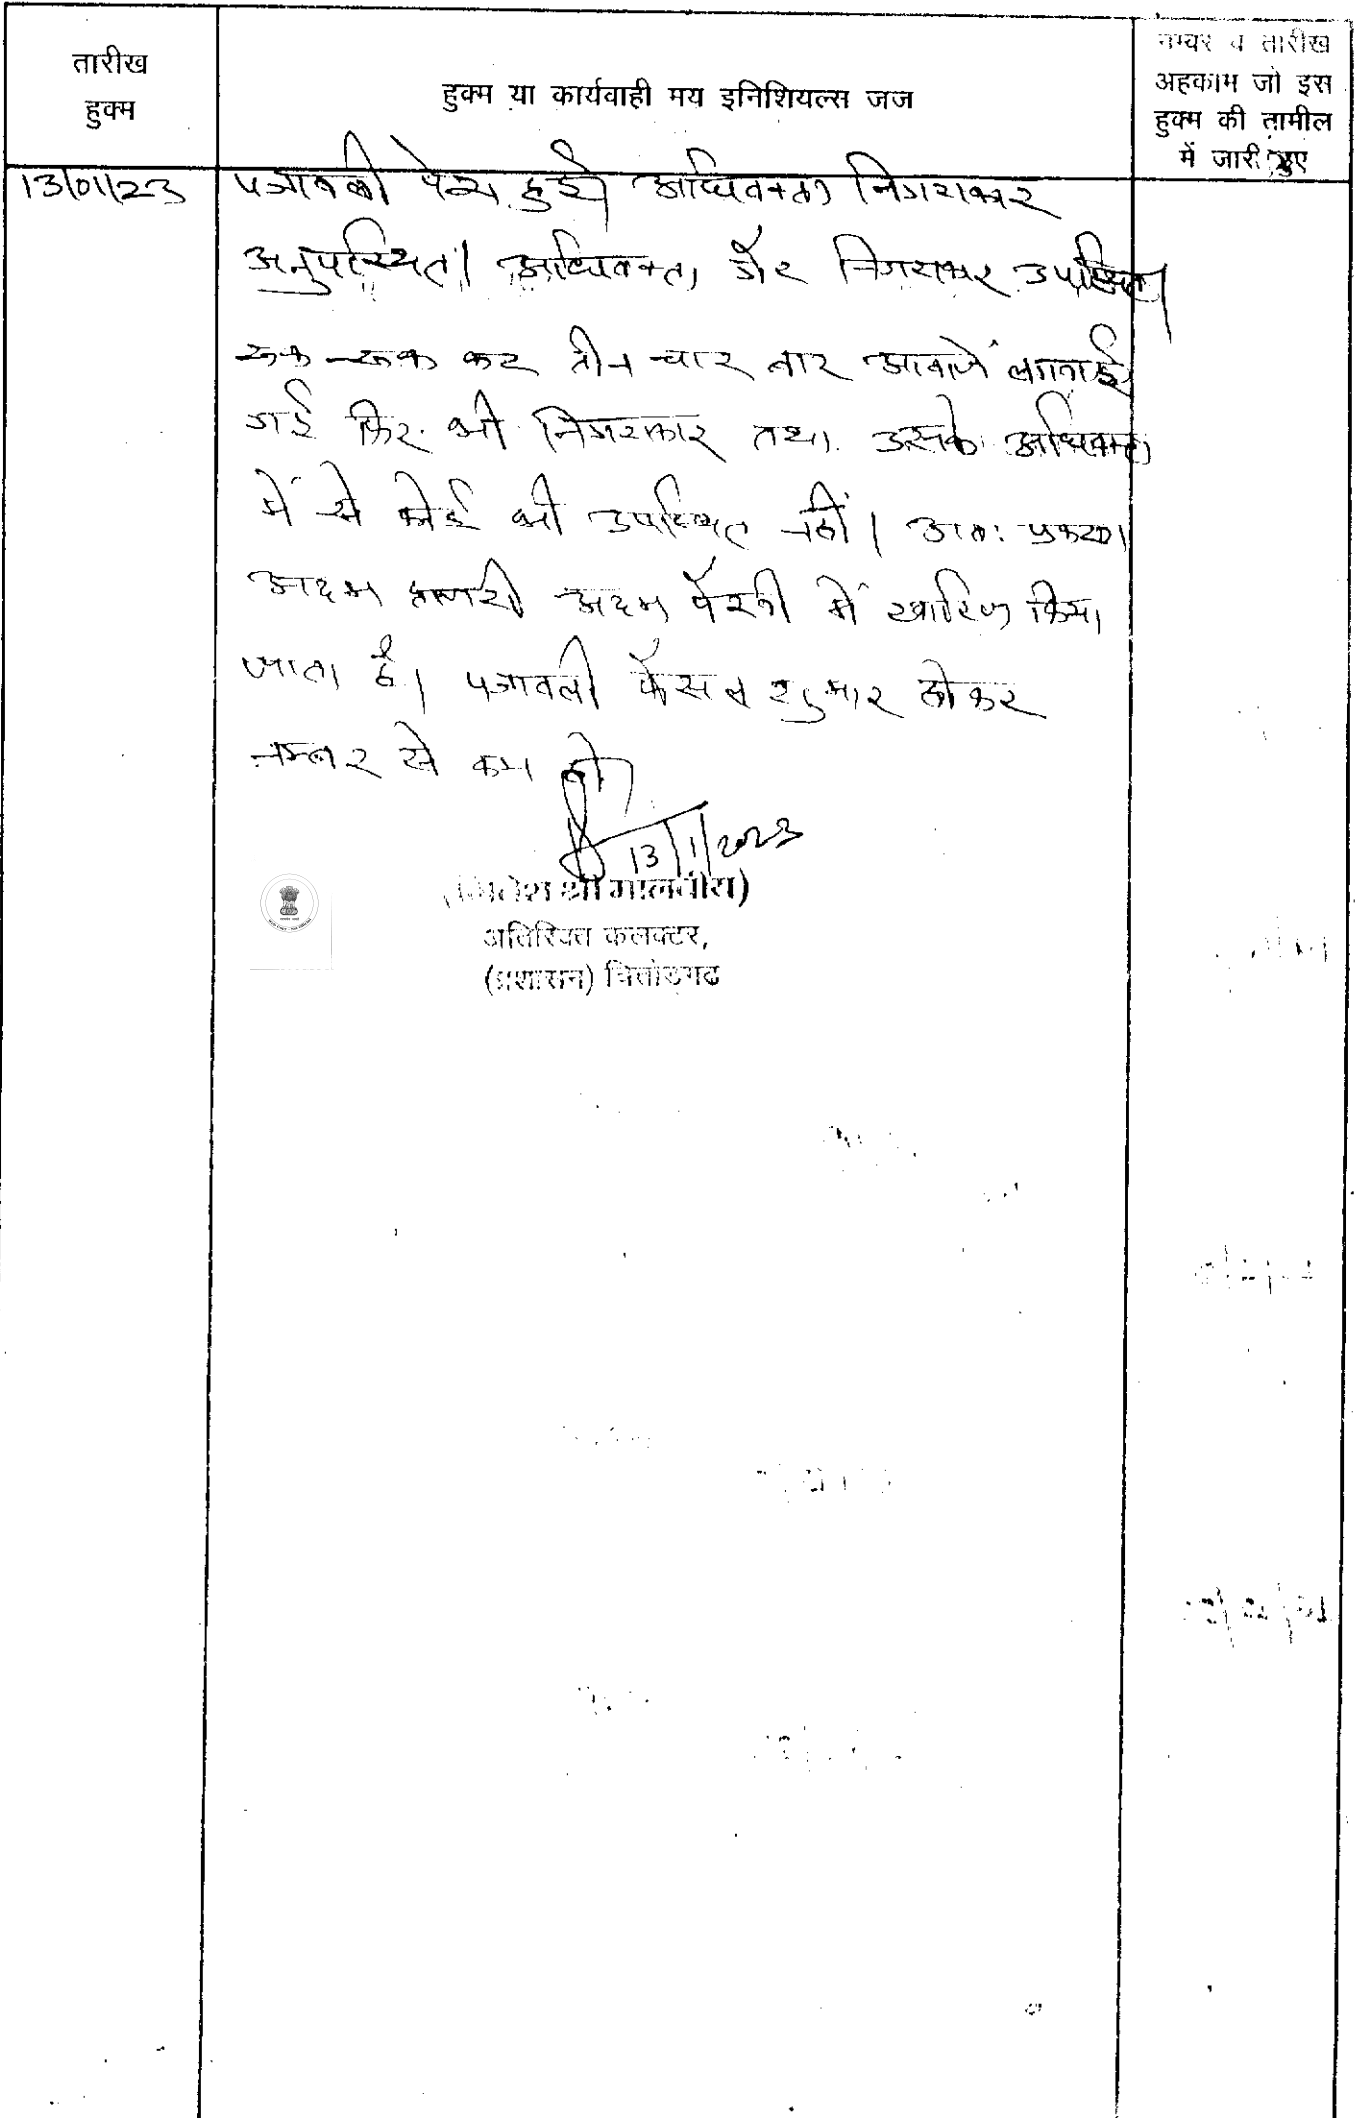 तारीख
हुक्म
हुक्म या कार्यवाही मय इनिशियल्स जज
नम्बर व तारीख
अहकाम जो इस
हुक्म की तामील
में जारी हुए
13/01/23
पत्रावली पेश हुई। अधिवक्ता निगराकार
अनुपस्थित। अधिवक्ता गैर निगराकार उपस्थित।
रूक-रूक कर तीन चार बार आवाजें लगवाई
गई फिर भी निगराकार तथा उसके अधिवक्ता
में से कोई भी उपस्थित नहीं। अतः प्रकरण
अदम हाजरी अदम पैरवी में खारिज किया
जाता है। पत्रावली फैसल शुमार होकर
नम्बर से कम हो।
13/1/2023
श्री मालवीय)
अतिरिक्त कलक्टर,
(प्रशासन) चित्तोड़गढ